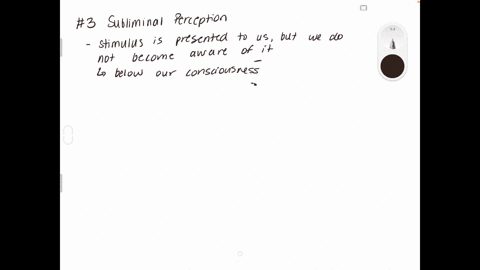 #3 Subliminal Perception
- stimulus is presented to us, but we do
not become aware of it
↳ below our consciousness